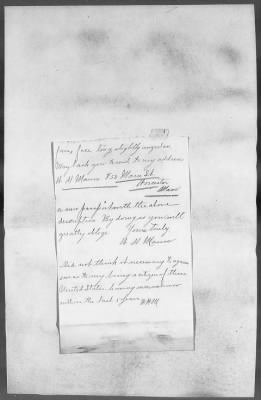 face long, slightly angular
May I ask you to send to my address
W H Mann 730 Main St
Worcester
Mass
a new passport with the above
description By doing so you will
greatly oblige Yours truly
W H Mann
Did not think it necessary to again
swear to my being a citizen of these
United States having
within the last years W.H.M